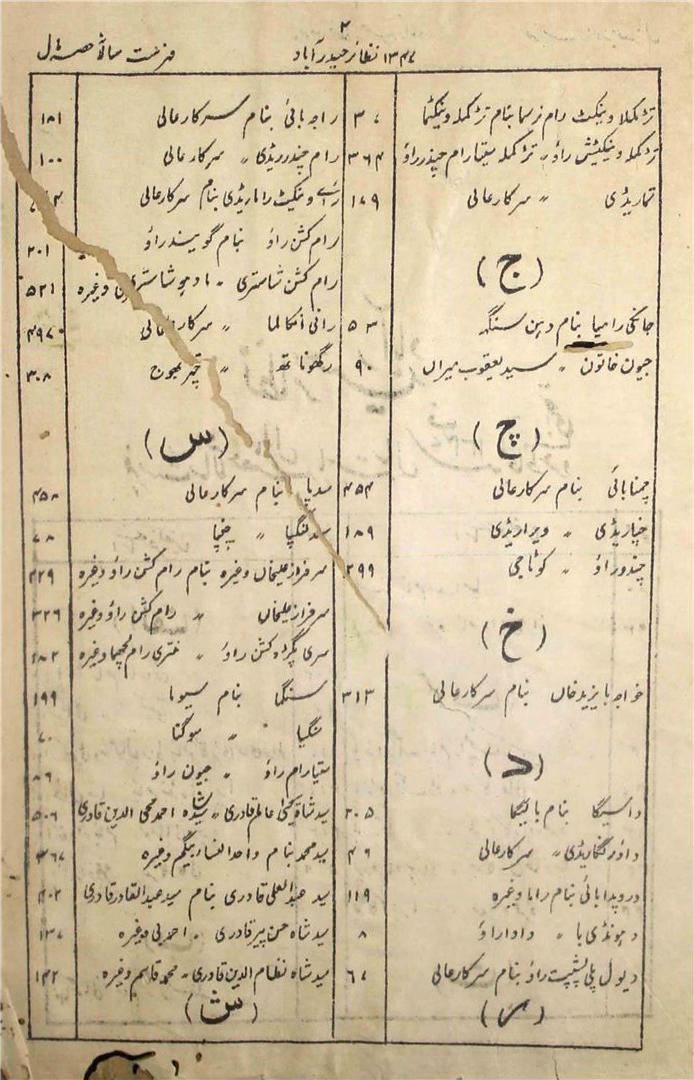 ۲
۱۳۴۷ نظائر حیدرآباد
ترکملا وینکٹ رام نرسما بنام ترکملہ وینکٹما ۳۷
ترکملہ وینکٹیش راؤ ، ترکملہ سیتا رام چندر راؤ ۳۶۴
تماریڈی ، سرکارعالی ۱۷۹
(ج)
جانکی رامیا بنام دہن سنگہ ۵۳
جیون خاتون ، سید یعقوب میراں ۹۰
(چ)
چمنابائی بنام سرکارعالی ۴۵۴
ویراریڈی ۱۸۹
چندو راؤ ، کوٹاجی ۲۹۹
(خ)
خواجہ بایزید خاں بنام سرکارعالی ۳۱۳
(د)
داسیگا بنام ۲۰۵
سرکارعالی ۴۶
دروپدابائی بنام راما وغیرہ ۱۱۹
دہونڈی با ، داداراؤ ۸
دیول پلی راؤ بنام سرکارعالی ۶۷
(ر)
راجہ بائی بنام سرکارعالی ۱۸۱
رام چندر ریڈی ، سرکارعالی ۱۰۰
رائے وینکٹ راماریڈی بنام سرکارعالی
رام کشن راؤ بنام گویندراؤ ۲۰۱
رام کشن شاستری ، مادہو شاستری وغیرہ ۵۲۱
رانی انکالما ، سرکارعالی ۴۹۷
رگھوناتھ ، چتر بھوج ۳۰۸
(س)
سدیا بنام سرکارعالی ۴۵۸
سدلنگیا ، چنپا ۷۸
سرفراز علیخاں وغیرہ بنام رام کشن راؤ وغیرہ ۲۲۹
سرفراز علیخاں ، رام کشن راؤ وغیرہ ۳۲۶
سری کشن راؤ ، منتری رام لچھیا وغیرہ ۱۸۲
سنگا بنام سیوا ۱۹۹
سنگیا ، موگنا ۷۰
سیتارام راؤ ، جیون راؤ ۸۶
سید شاہ یحییٰ عالم قادری ، سید شاہ احمد محی الدین قادری ۵۰۶
سید محمد بنام واحد النساء بیگم وغیرہ ۳۶۷
سید عبدالعلی قادری بنام سید عبدالقادر قادری ۴۰۲
سید شاہ حسن پیر قادری ، احمد بی وغیرہ ۱۳۷
سید شاہ نظام الدین قادری ، محمد قاسم وغیرہ ۱۴۲
(ش)